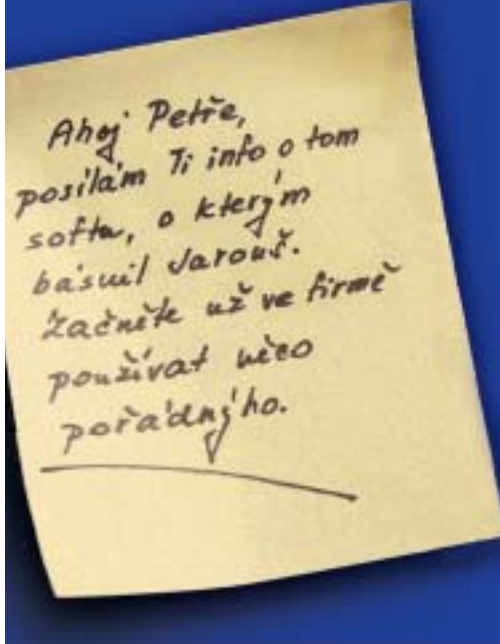 Ahoj Petře,
posílám Ti info o tom
softu, o kterým
básnil Jarouš.
Začněte už ve firmě
používat něco
pořádnýho.